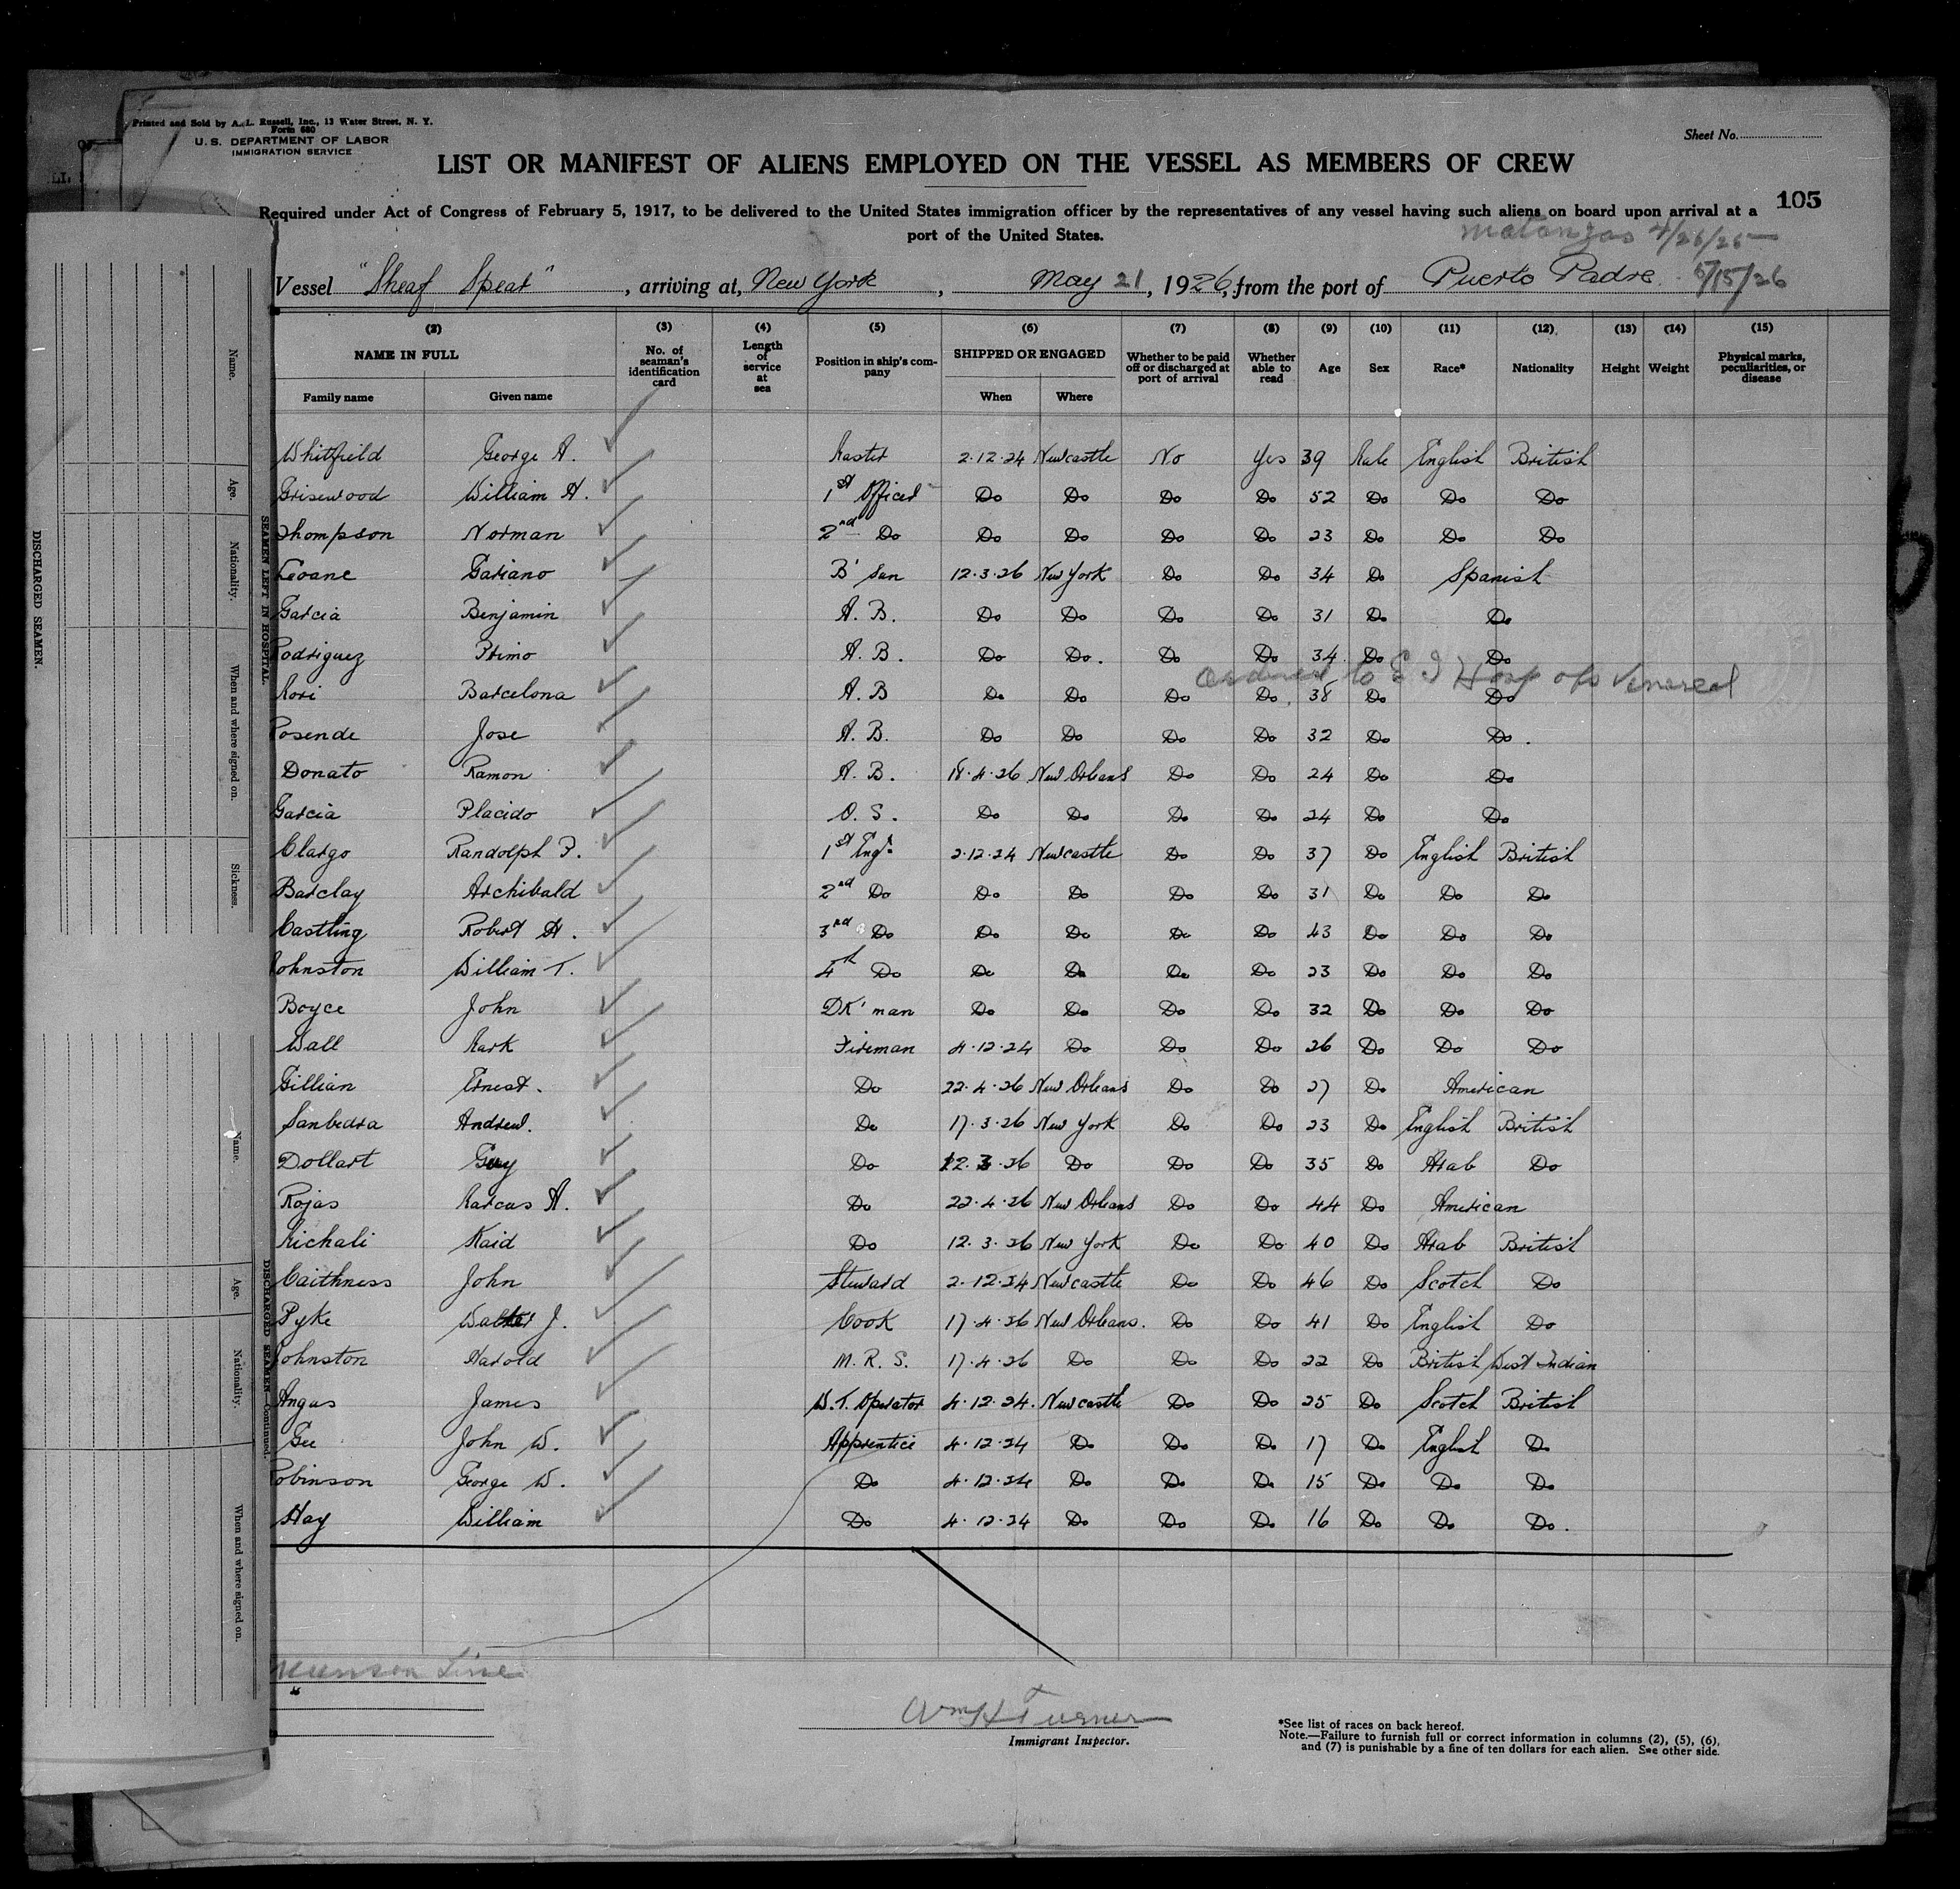 Printed and Sold by A. L. Russell, Inc., 13 Water Street, N. Y.
Form 680
U. S. DEPARTMENT OF LABOR
IMMIGRATION SERVICE
Sheet No.
LIST OR MANIFEST OF ALIENS EMPLOYED ON THE VESSEL AS MEMBERS OF CREW
105
Required under Act of Congress of February 5, 1917, to be delivered to the United States immigration officer by the representatives of any vessel having such aliens on board upon arrival at a
port of the United States.
Matanzas 4/26/26
Vessel "Sheaf Spear", arriving at, New York, May 21, 1926, from the port of Puerto Padre 5/15/26
(2) (3) (4) (5) (6) (7) (8) (9) (10) (11) (12) (13) (14) (15)
NAME IN FULL No. of seaman's identification card Length of service at sea Position in ship's company SHIPPED OR ENGAGED Whether to be paid off or discharged at port of arrival Whether able to read Age Sex Race* Nationality Height Weight Physical marks, peculiarities, or disease
Family name Given name When Where
Whitfield George A. Master 2.12.24 Newcastle No Yes 39 Male English British
Grisewood William H. 1st Officer Do Do Do Do 52 Do Do Do
Thompson Norman 2nd Do Do Do Do Do 23 Do Do Do
Seoane Gariano B'sun 12.3.26 New York Do Do 34 Do Spanish
Garcia Benjamin A. B. Do Do Do Do 31 Do Do
Rodriguez Primo A. B. Do Do. Do Do 34 Do Do
Ordered to E I Hosp ofs Venereal
Mori Barcelona A. B Do Do Do Do 38 Do Do
Rosende Jose A. B. Do Do Do Do 32 Do Do.
Donato Ramon A. B. 18.4.26 New Orleans Do Do 24 Do Do
Garcia Placido O. S. Do Do Do Do 24 Do Do
Clargo Randolph F. 1st Engr 2.12.24 Newcastle Do Do 37 Do English British
Barclay Archibald 2nd Do Do Do Do Do 31 Do Do Do
Castling Robert H. 3rd Do Do Do Do Do 43 Do Do Do
Johnston William T. 4th Do Do Do Do Do 23 Do Do Do
Boyce John DK'man Do Do Do Do 32 Do Do Do
Wall Mark Fireman 4.12.24 Do Do Do 26 Do Do Do
Gillian Ernest. Do 22.4.26 New Orleans Do Do 27 Do American
Sanbedra Andrew. Do 17.3.26 New York Do Do 23 Do English British
Dollart Guy Do 12.3.26 Do Do Do 35 Do Arab Do
Rojas Marcus A. Do 22.4.26 New Orleans Do Do 44 Do American
Michali Kaid Do 12.3.26 New York Do Do 40 Do Arab British
Caithness John Steward 2.12.24 Newcastle Do Do 46 Do Scotch Do
Pyke Walter J. Cook 17.4.26 New Orleans. Do Do 41 Do English Do
Johnston Harold M. R. S. 17.4.26 Do Do Do 22 Do British West Indian
Angus James W.T. Operator 4.12.24. Newcastle Do Do 25 Do Scotch British
Gee John W. Apprentice 4.12.24 Do Do Do 17 Do English Do
Robinson George W. Do 4.12.24 Do Do Do 15 Do Do Do
Hay William Do 4.12.24 Do Do Do 16 Do Do Do.
Munson Line
"
Wm H Turner
Immigrant Inspector.
*See list of races on back hereof.
Note.—Failure to furnish full or correct information in columns (2), (5), (6),
and (7) is punishable by a fine of ten dollars for each alien. See other side.
DISCHARGED SEAMEN.
Name.
Age.
Nationality.
When and where signed on.
Sickness.
SEAMEN LEFT IN HOSPITAL.
Name.
Age.
Nationality.
When and where signed on.
DISCHARGED SEAMEN—Continued.